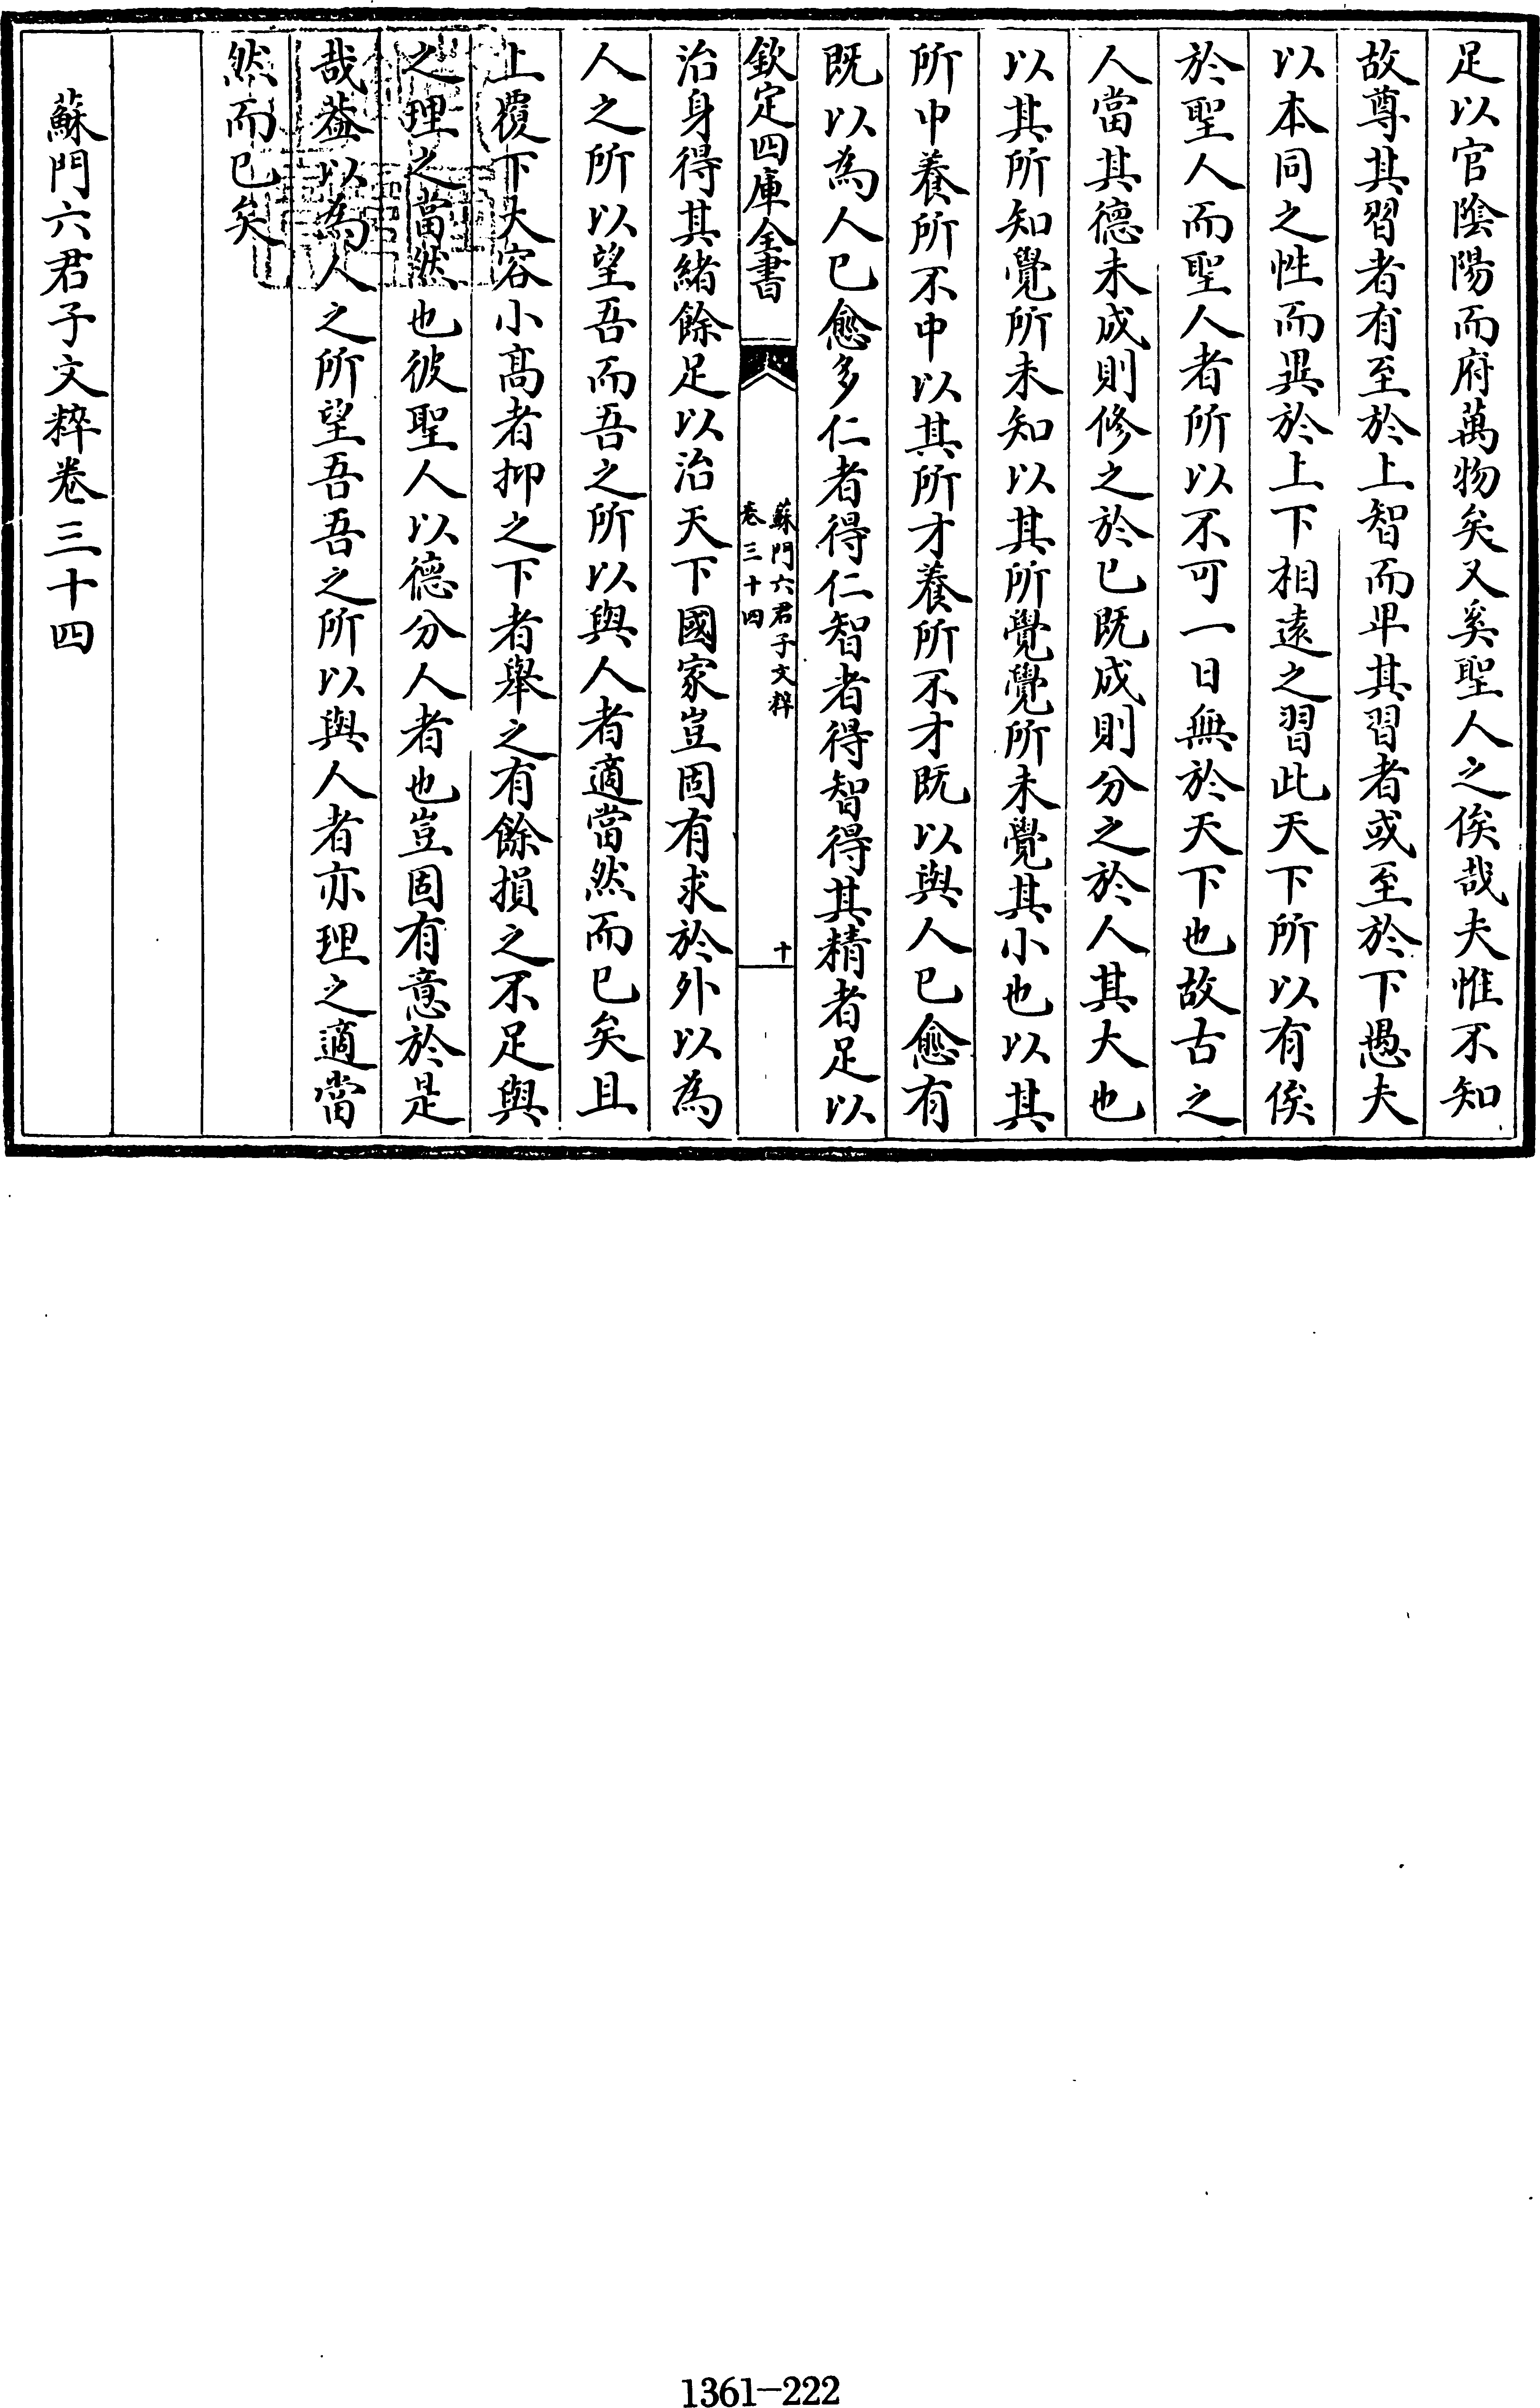 足以官陰陽而府萬物矣又奚聖人之俟哉夫惟不知
故尊其習者有至於上智而卑其習者或至於下愚夫
以本同之性而異於上下相遠之習此天下所以有俟
於聖人而聖人者所以不可一日無於天下也故古之
人當其德未成則修之於已既成則分之於人其大也
以其所知覺所未知以其所覺覺所未覺其小也以其
所中養所不中以其所才養所不才既以與人已愈有
既以為人已愈多仁者得仁智者得智得其精者足以
欽定四庫全書
蘇門六君子文粹
卷三十四
十
治身得其緒餘足以治天下國家豈固有求於外以為
人之所以望吾而吾之所以與人者適當然而已矣且
上覆下大容小髙者抑之下者舉之有餘損之不足與
之理之當然也彼聖人以德分人者也豈固有意於是
哉葢以為人之所望吾吾之所以與人者亦理之適當
然而已矣
蘇門六君子文粹卷三十四
1361-222